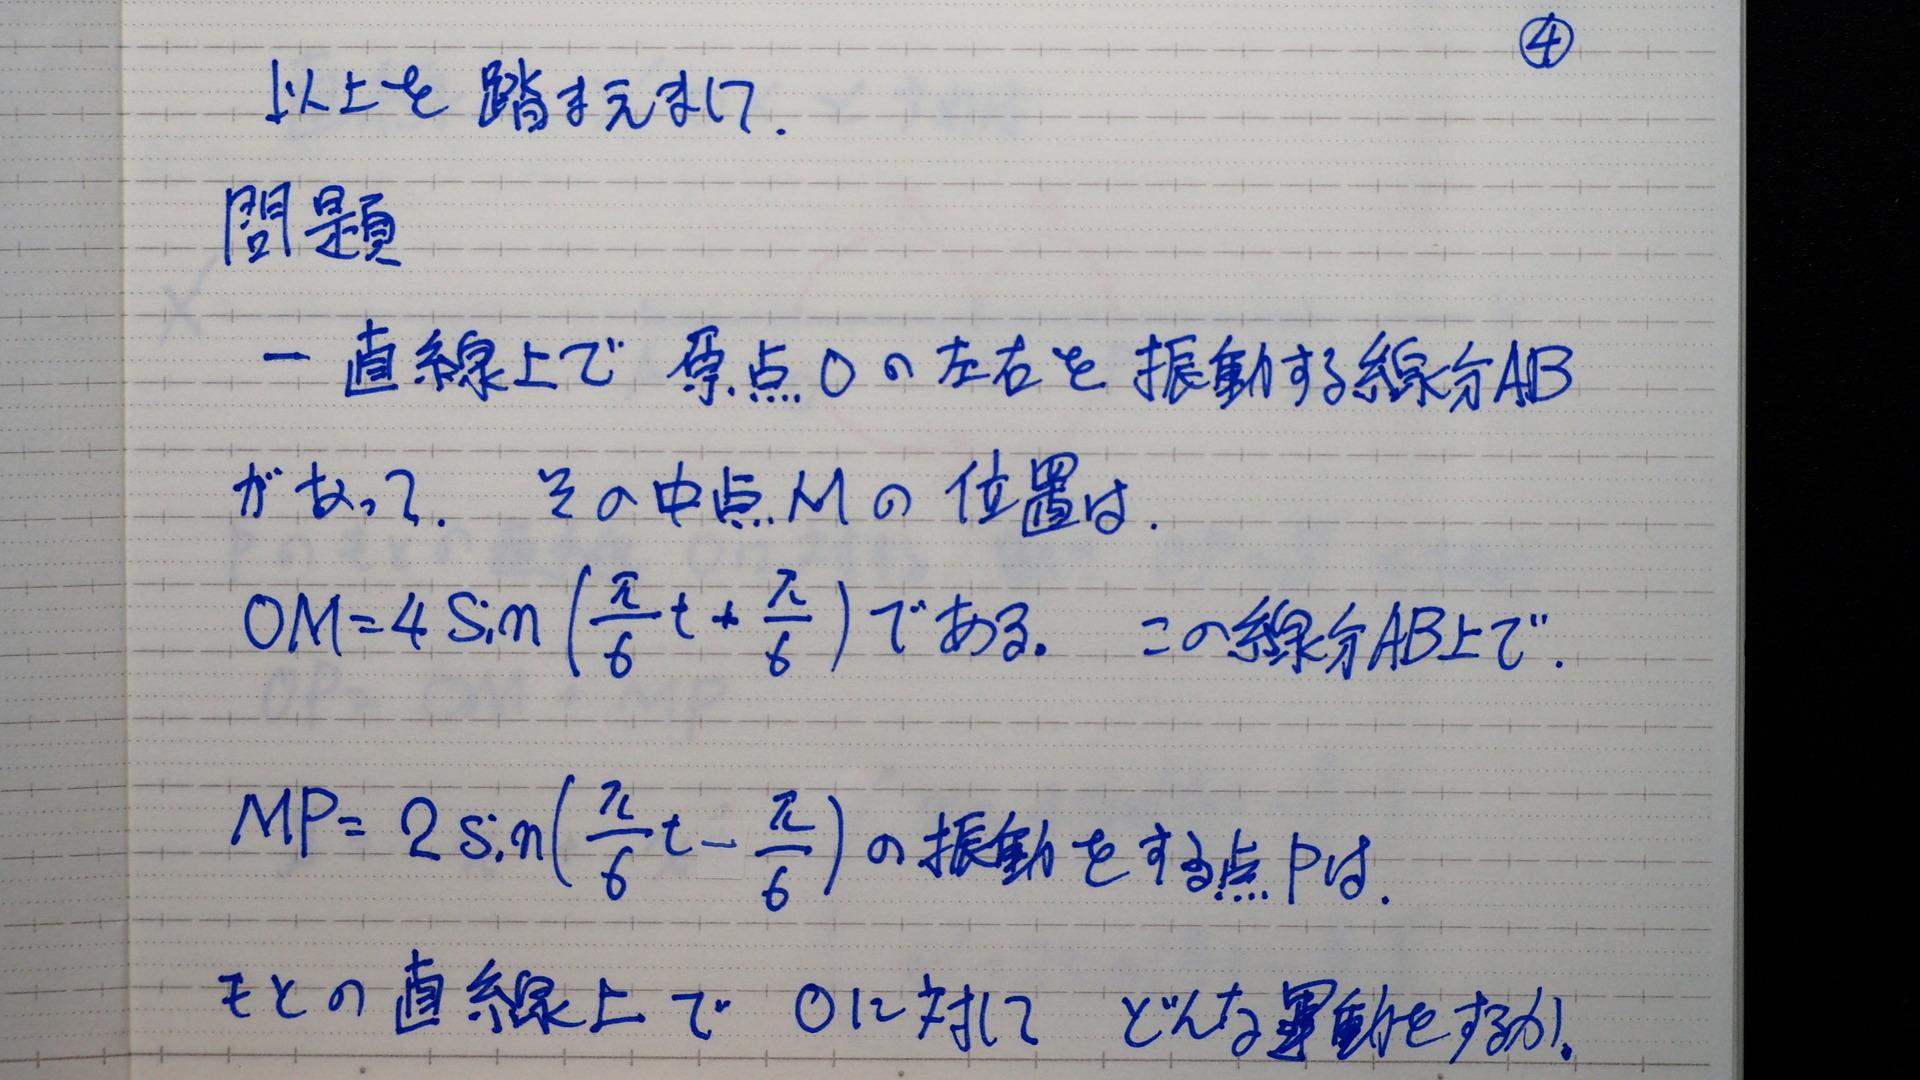 ④
以上を踏まえまして.
問題
一直線上で 原点Oの左右を振動する線分AB
があって. その中点Mの位置は.
OM=4 sin(π/6 t + π/6)である. この線分AB上で.
MP=2 sin(π/6 t - π/6)の振動をする点Pは.
もとの直線上で Oに対して どんな運動をするか.